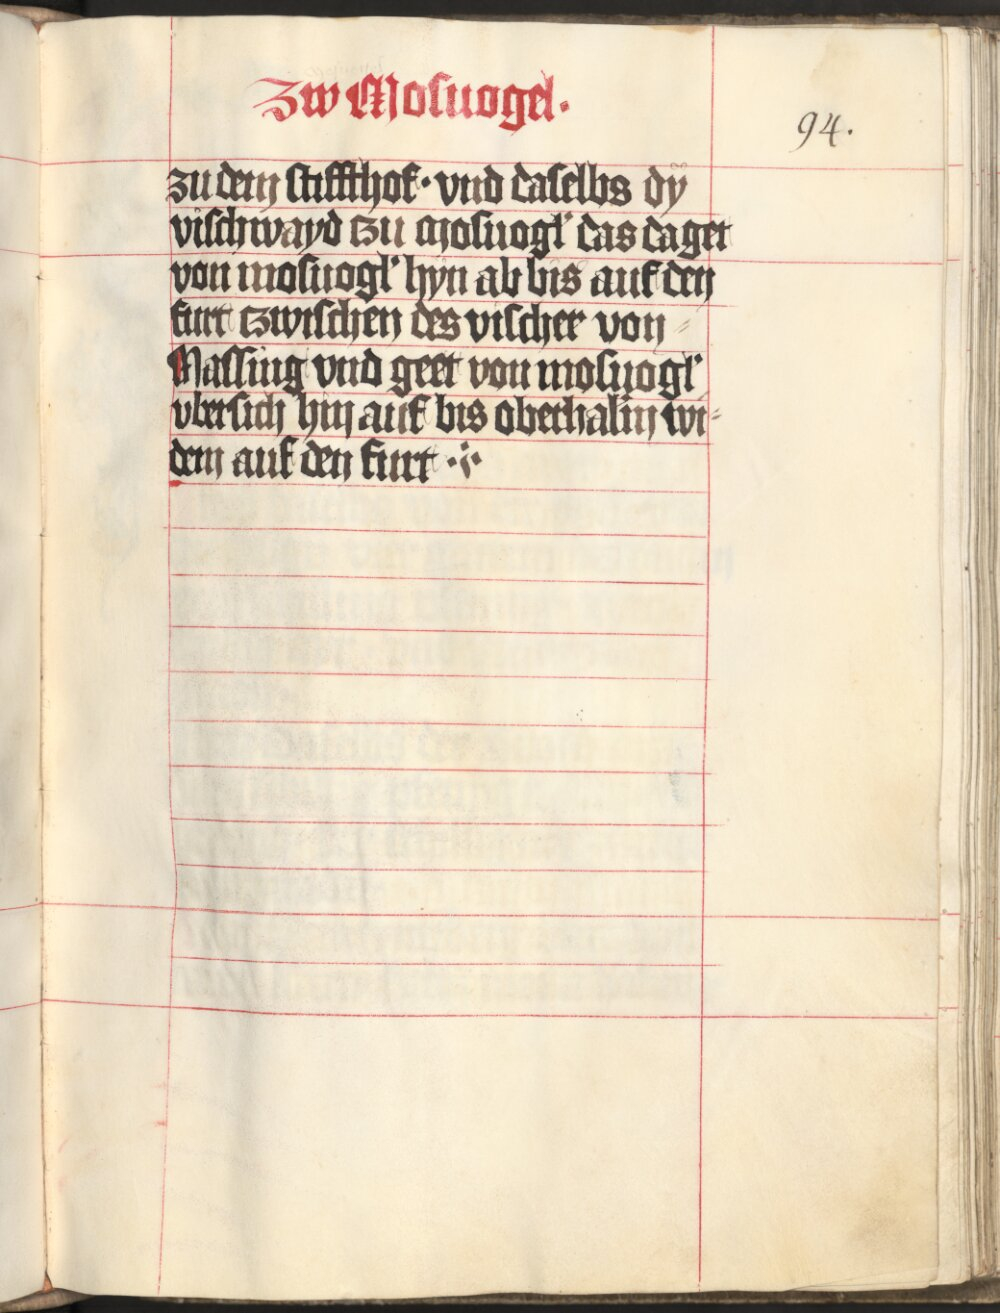 Zw Mosuogel.
94.
zu dem stiffthof · vnd daselbs dÿ
vischwayd tzu mosuogl' das daget
von mosuogl' hyn ab bis auf den
furt tzwischen des vischer von
Massing vnd geet von mosuogl'
vbersich hin auf bis oberhalm wi-
dem auf den furt